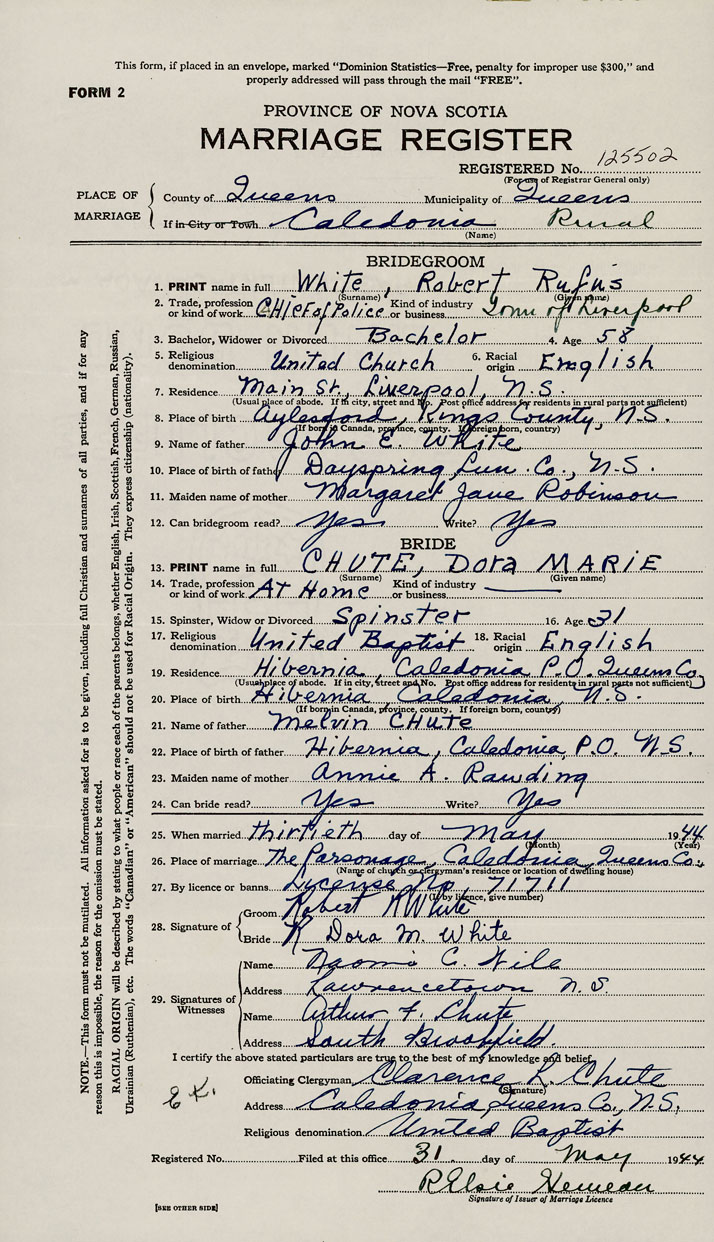 This form, if placed in an envelope, marked "Dominion Statistics—Free, penalty for improper use $300," and
properly addressed will pass through the mail "FREE".
FORM 2
PROVINCE OF NOVA SCOTIA
MARRIAGE REGISTER
REGISTERED No. 125502
(For use of Registrar General only)
PLACE OF MARRIAGE
County of Queens Municipality of Queens
If in City or Town Caledonia Rural
(Name)
BRIDEGROOM
1. PRINT name in full White, Robert Rufus
(Surname) (Given name)
2. Trade, profession or kind of work CHief of Police Kind of industry or business Town of Liverpool
3. Bachelor, Widower or Divorced Bachelor 4. Age 58
5. Religious denomination United Church 6. Racial origin English
7. Residence Main St., Liverpool, N.S.
(Usual place of abode. If in city, street and No. Post office address for residents in rural parts not sufficient)
8. Place of birth Aylesford, Kings County, N.S.
(If born in Canada, province, county. If foreign born, country)
9. Name of father John E. White
10. Place of birth of father Dayspring Lun. Co., N.S.
11. Maiden name of mother Margaret Jane Robinson
12. Can bridegroom read? Yes Write? Yes
BRIDE
13. PRINT name in full CHUTE, Dora MARIE
(Surname) (Given name)
14. Trade, profession or kind of work At Home Kind of industry or business
15. Spinster, Widow or Divorced Spinster 16. Age 31
17. Religious denomination United Baptist 18. Racial origin English
19. Residence Hibernia, Caledonia P.O. Queens Co.
(Usual place of abode. If in city, street and No. Post office address for residents in rural parts not sufficient)
20. Place of birth Hibernia Caledonia, N.S.
(If born in Canada, province, county. If foreign born, country)
21. Name of father Melvin CHute
22. Place of birth of father Hibernia, Caledonia, P.O. N.S.
23. Maiden name of mother Annie A. Rawding
24. Can bride read? Yes Write? Yes
25. When married thirtieth day of May 1944
(Month) (Year)
26. Place of marriage The Parsonage, Caledonia, Queens Co.,
(Name of church or clergyman's residence or location of dwelling house)
27. By licence or banns License No, 71711
(If by licence, give number)
28. Signature of Groom Robert R White
Bride Dora M. White
29. Signatures of Witnesses
Name Naomi C. Wile
Address Lawrencetown N.S.
Name Arthur F. Chute
Address South Brookfield.
I certify the above stated particulars are true to the best of my knowledge and belief.
Officiating Clergyman Clarence R. Chute
(Signature)
Address Caledonia, Queens Co., N.S.
Religious denomination United Baptist
Registered No. Filed at this office 31 day of May 1944
Signature of Issuer of Marriage Licence
[SEE OTHER SIDE]
NOTE.—This form must not be mutilated. All information asked for is to be given, including full Christian and surnames of all parties, and if for any
reason this is impossible, the reason for the omission must be stated.
RACIAL ORIGIN will be described by stating to what people or race each of the parents belongs, whether English, Irish, Scottish, French, German, Russian,
Ukrainian (Ruthenian), etc. The words "Canadian" or "American" should not be used for Racial Origin. They express citizenship (nationality).